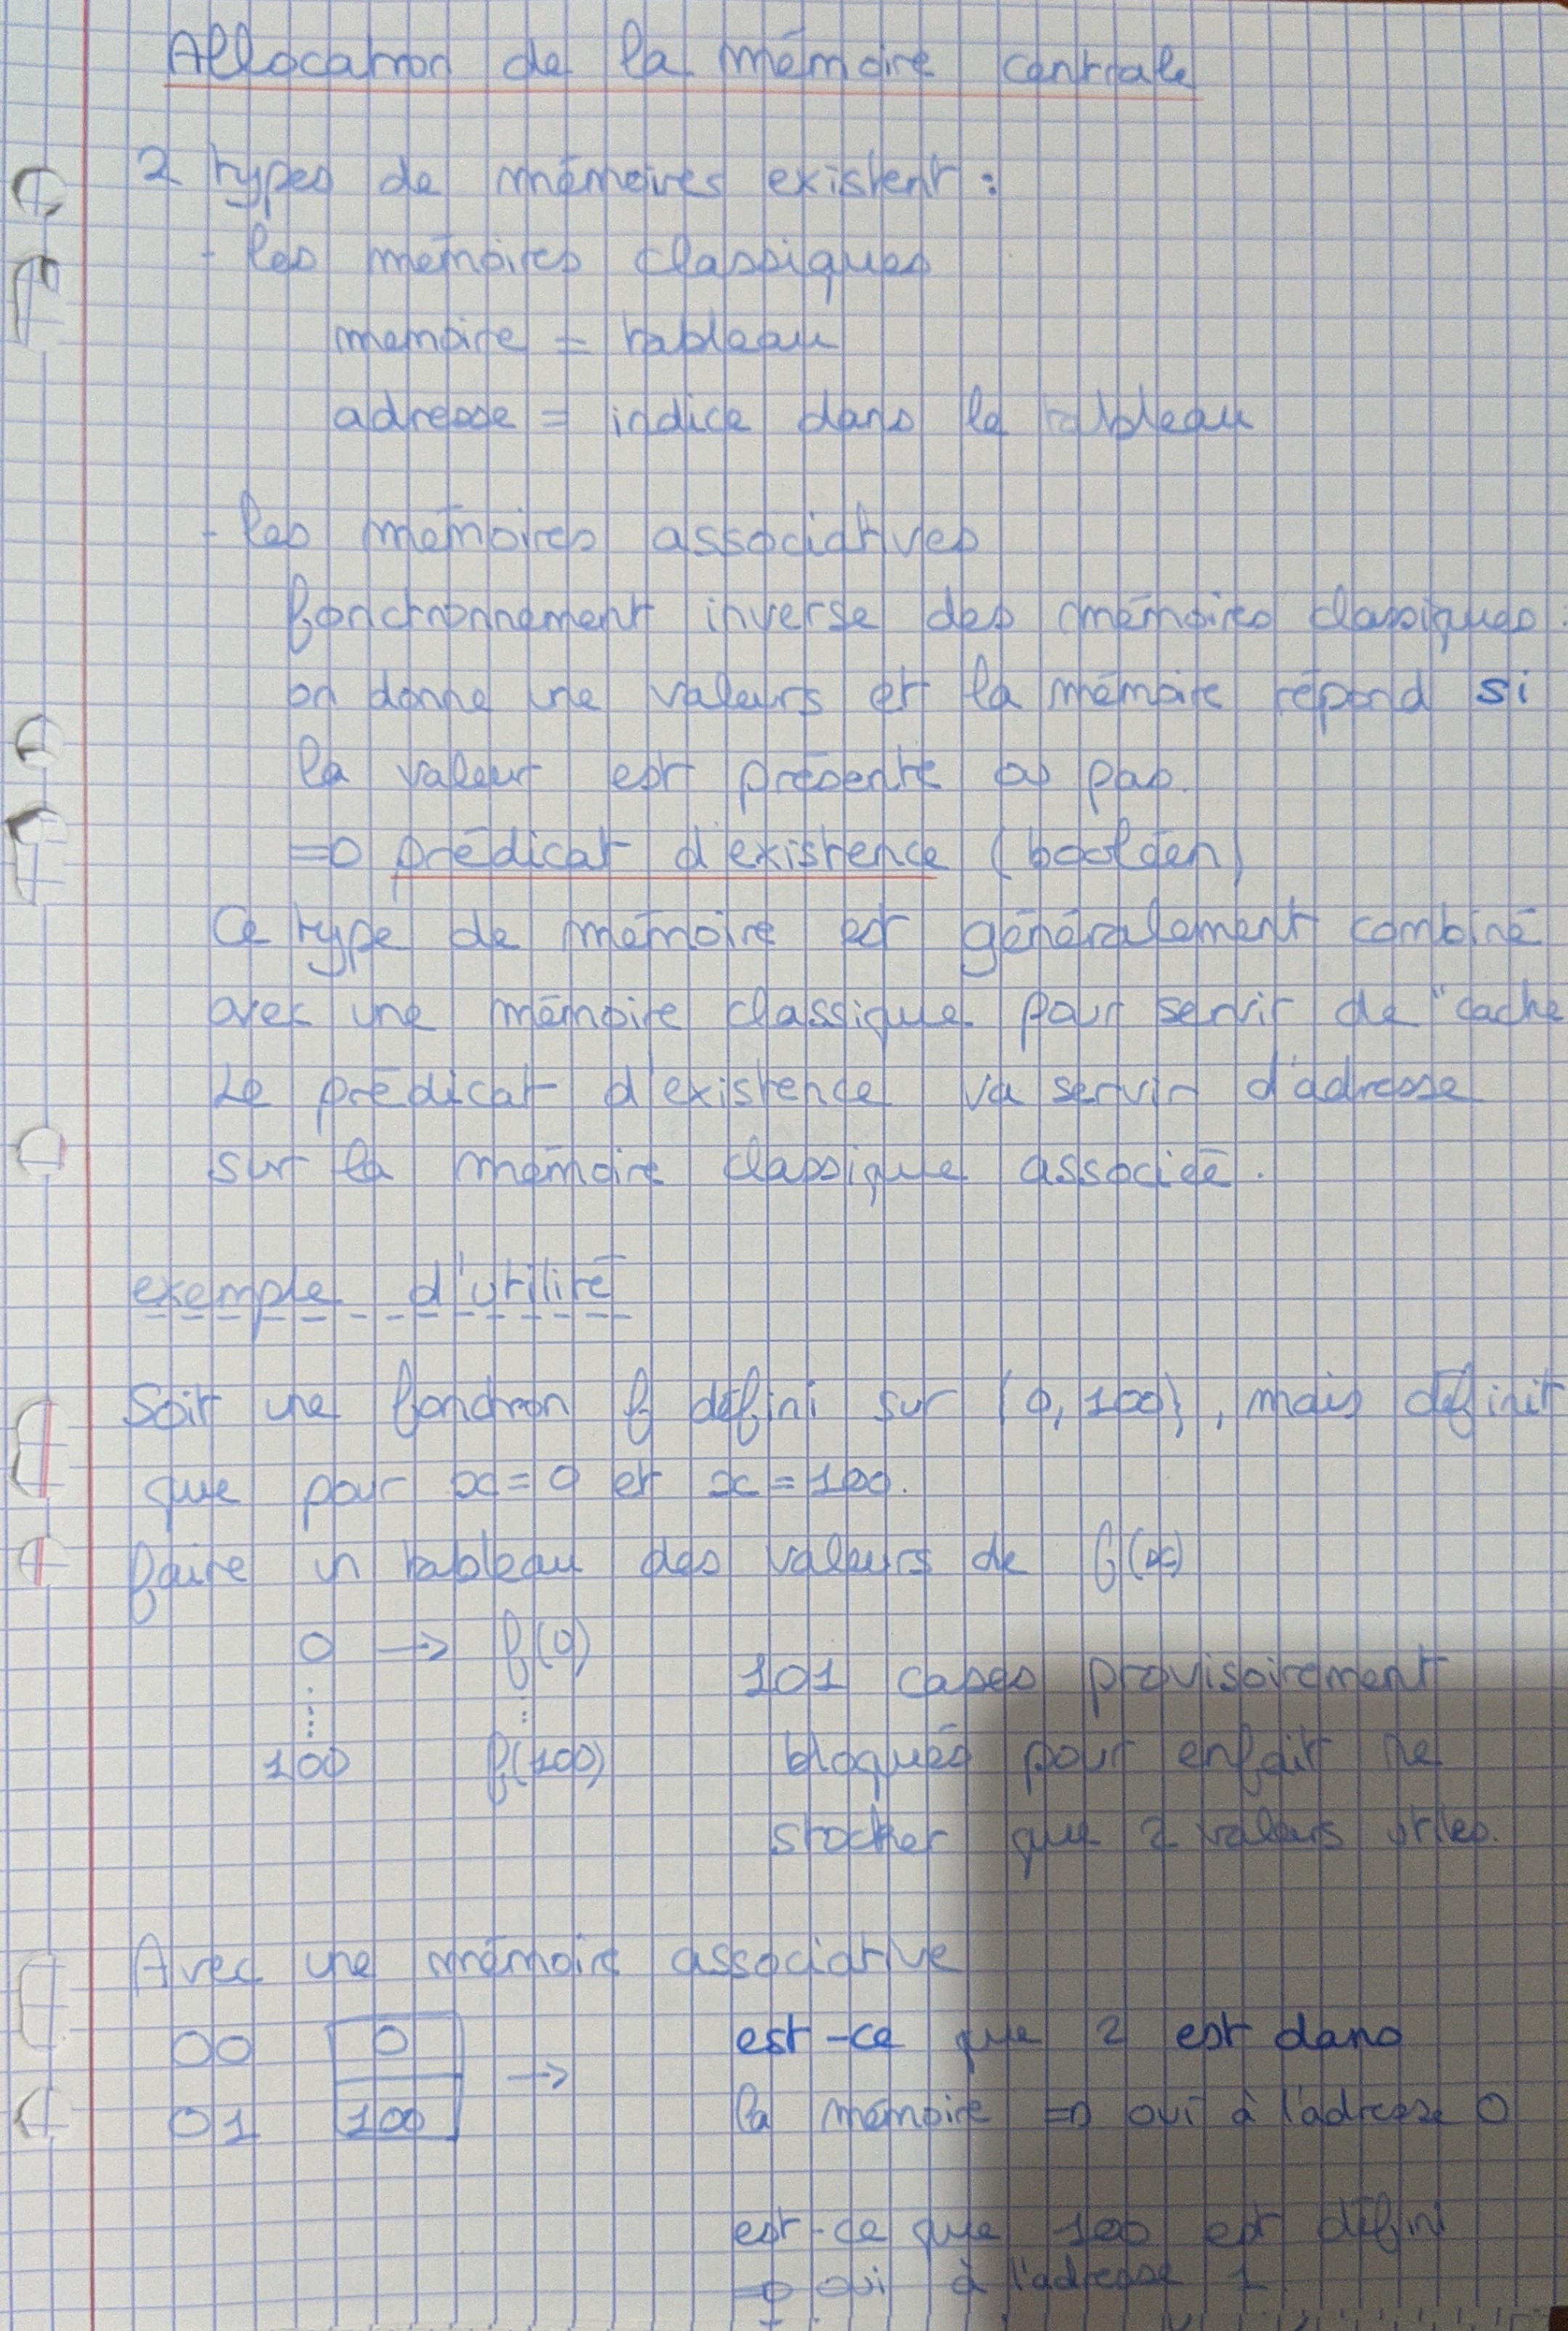 Allocation de la mémoire centrale
2 types de mémoires existent :
- les mémoires classiques
memoire = tableau
adresse = indice dans le tableau
- les mémoires associatives
fonctionnement inverse des mémoires classiques :
on donne une valeurs et la mémoire répond si
la valeur est présente ou pas.
=> prédicat d'existence (booléen)
Ce type de mémoire est généralement combiné
avec une mémoire classique pour servir de "cache
Le prédicat d'existence va servir d'adresse
sur la mémoire classique associée.
exemple d'utilité
Soit une fonction f défini sur {0, 100}, mais définit
que pour x = 0 et x = 100.
faire un tableau des valeurs de f(x)
0 -> f(0) 101 cases provisoirement
⋮ ⋮
100 f(100) bloqués pour enfait ne
stocker que 2 valeurs utiles.
Avec une mémoire associative
00 0 -> est-ce que 2 est dans
01 100 la mémoire => oui à l'adresse 0
est-ce que 100 est défini
=> oui à l'adresse 1